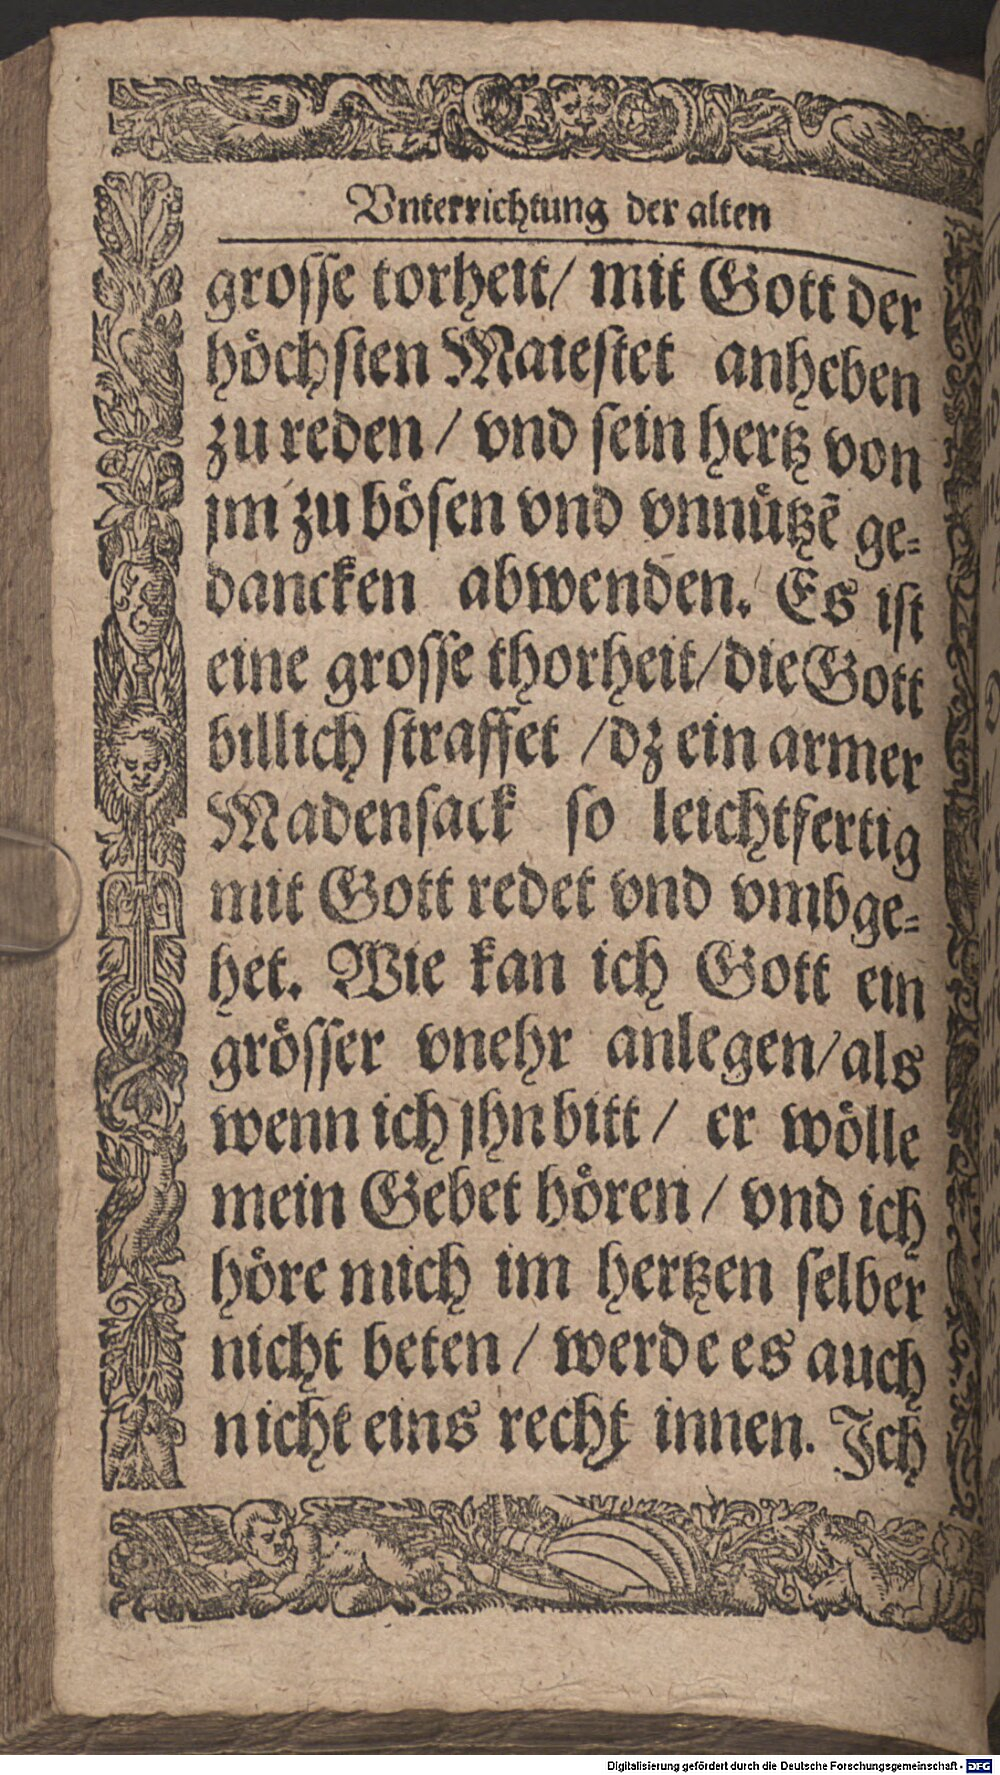 Vnterrichtung der alten
grosse torheit/ mit Gott der
höchsten Maiestet anheben
zu reden / vnd sein hertz von
jm zu bösen vnd vnnützẽ ge-
dancken abwenden. Es ist
eine grosse thorheit/die Gott
billich straffet /dz ein armer
Madensack so leichtfertig
mit Gott redet vnd vmbge-
het. Wie kan ich Gott ein
grösser vnehr anlegen/als
wenn ich jhn bitt / er wölle
mein Gebet hören / vnd ich
höre mich im hertzen selber
nicht beten / werde es auch
nicht eins recht innen. Ich
Digitalisierung gefördert durch die Deutsche Forschungsgemeinschaft - DFG